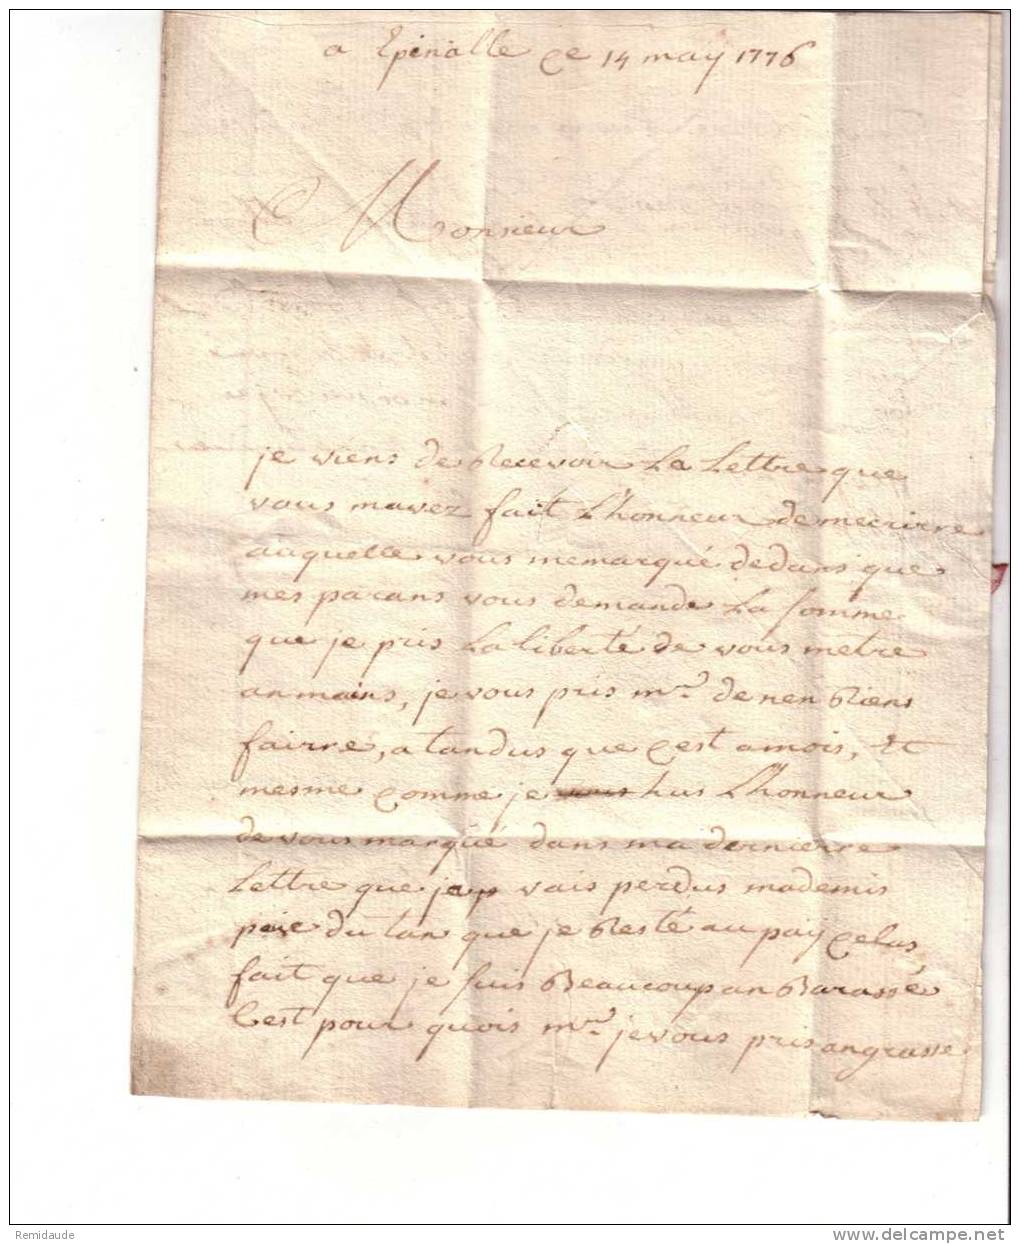 a Epinalle ce 14 may 1776
Monsieur
je viens de Recevoir La Lettre que
vous mavez fait L'honneur de mecrirre
auquelle vous memarqué dedans que
mes parans vous demande La somme
que je pris La liberté de vous metre
anmains, je vous pris mr. de nen Riens
fairre, atandus que cest amois, et
mesme comme je hus L'honneur
de vous marqué dans ma dernierre
Lettre que je vais perdus mademis
paie du tan que je Resté au pay celas,
fait que je suis Beaucoup an Barassé
Cest pour quois mr. je vous pris angrasse
Remidaude
www.delcampe.net